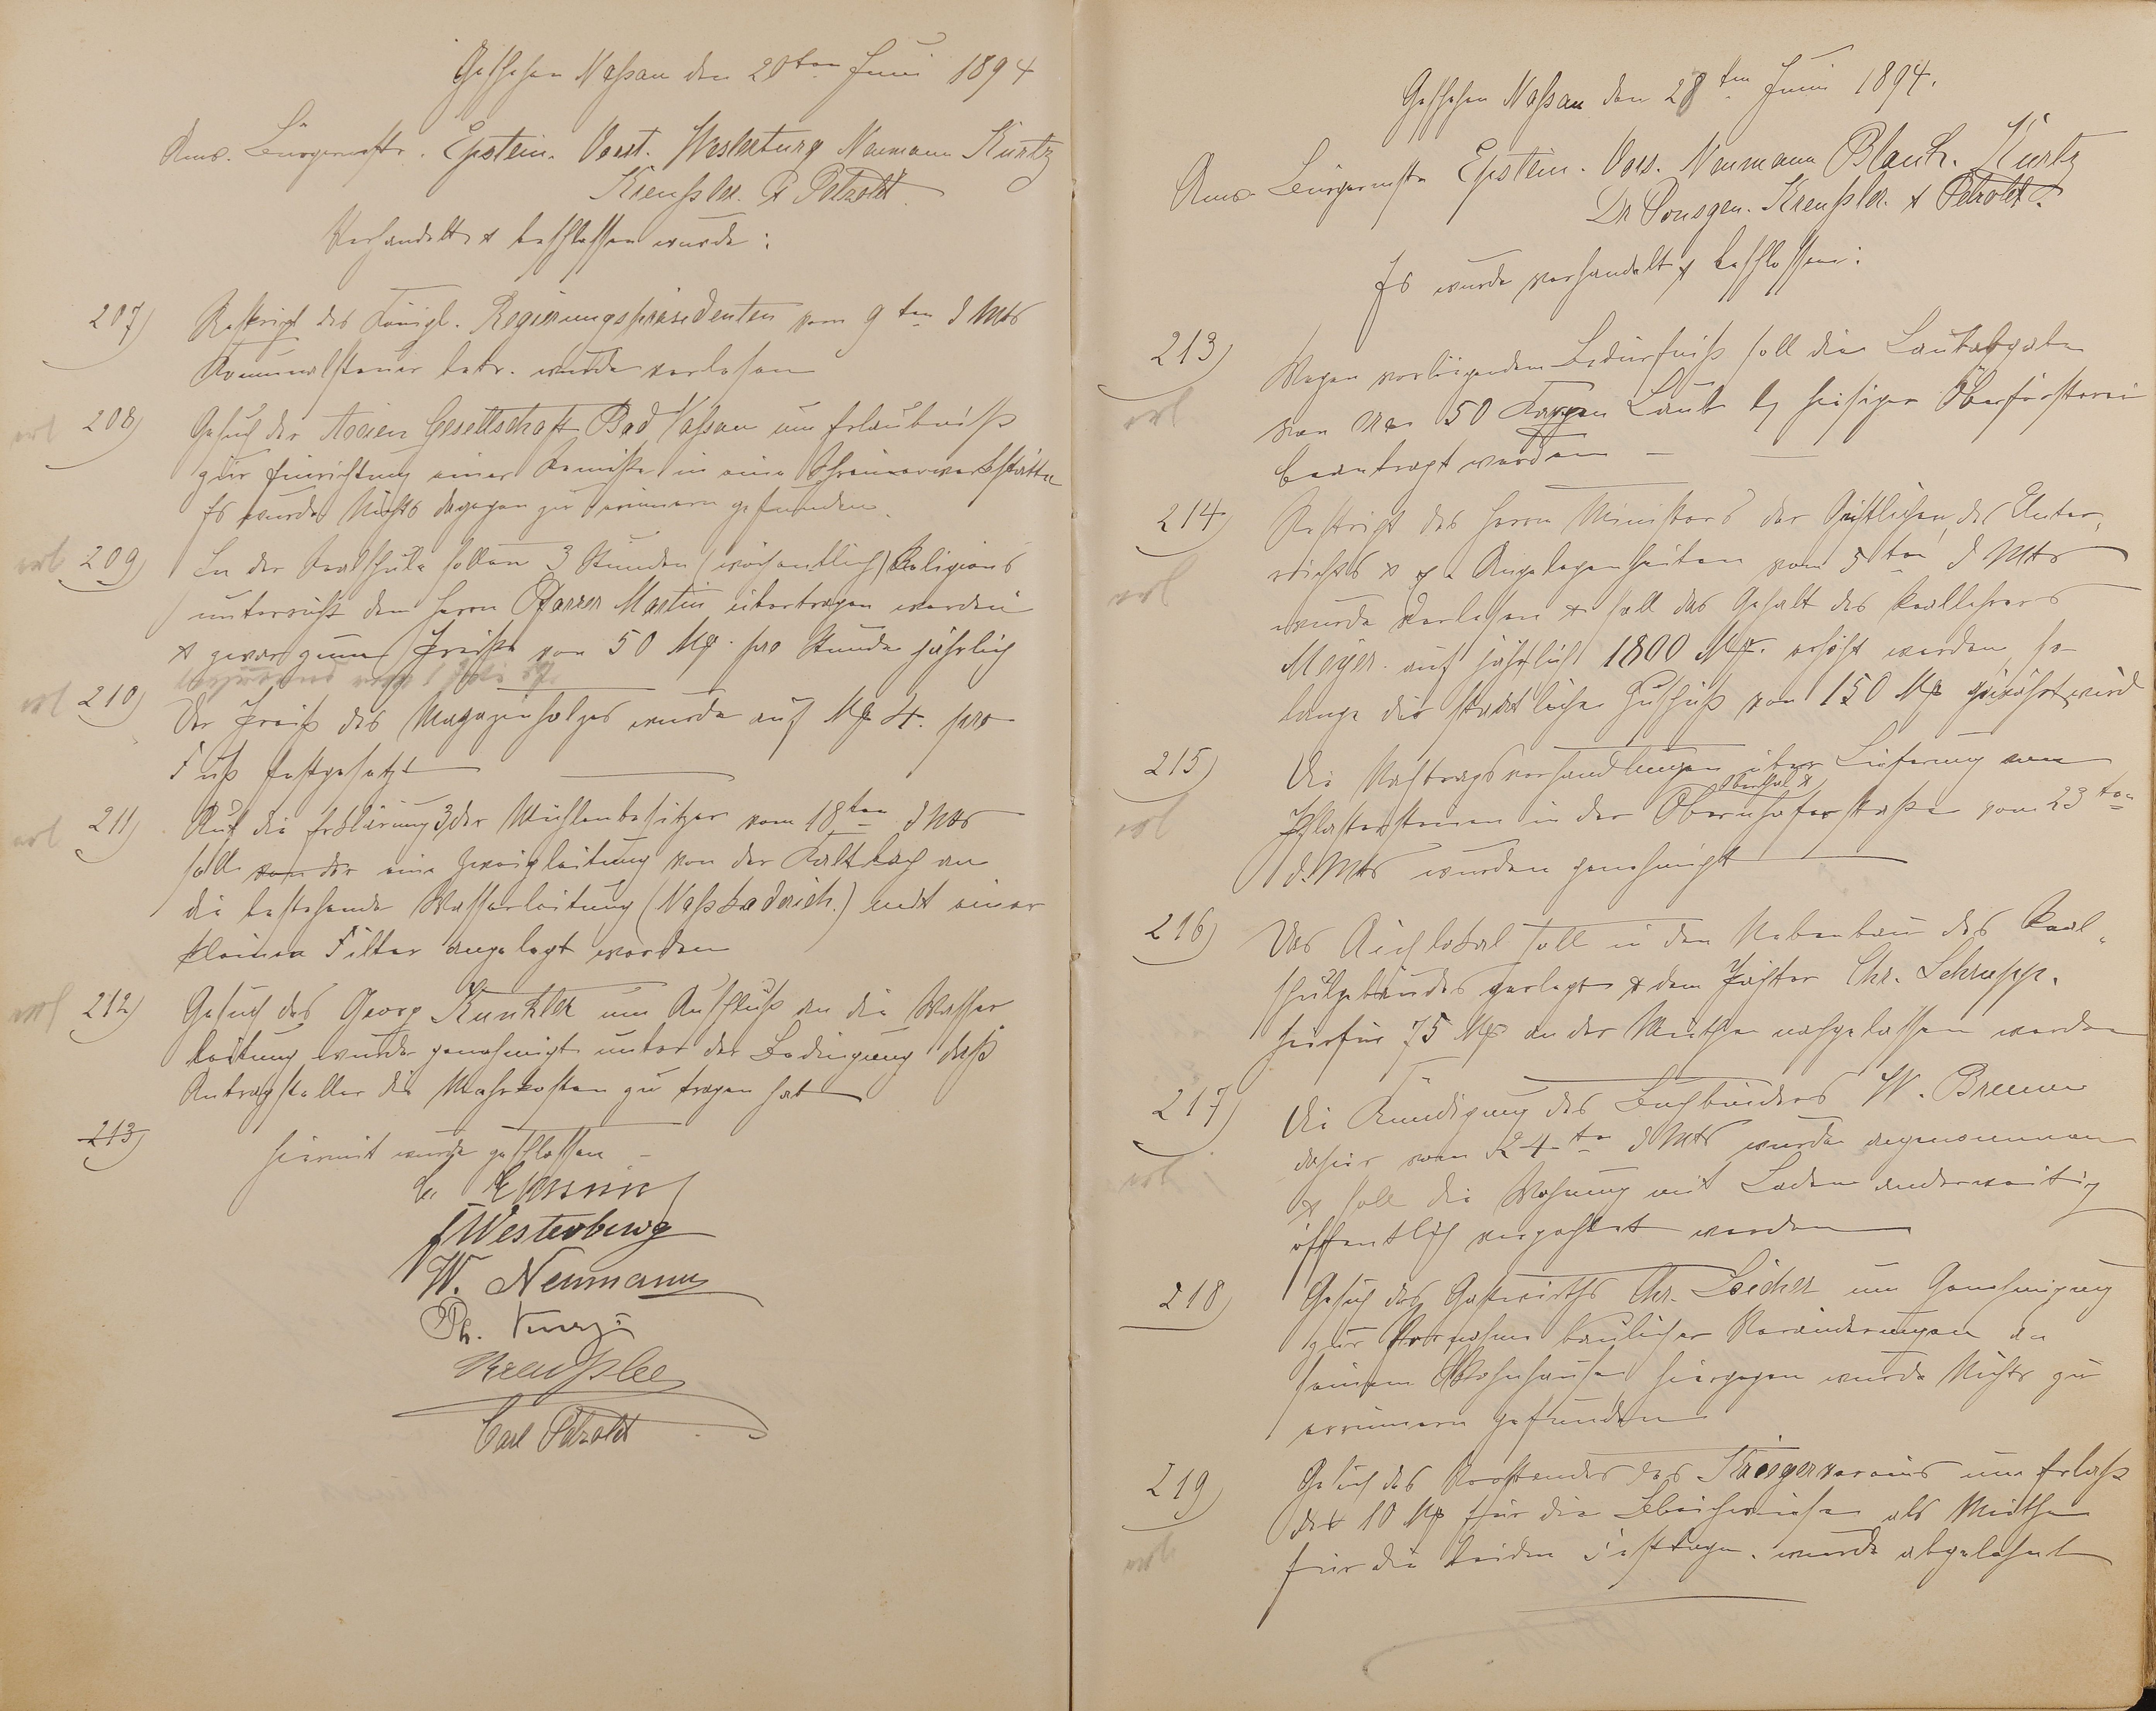 Geschehen Naßau den 20ten Juni 1894
Anw. Bürgermstr. Epstein. Vorst. Westerburg Neumann Kurtz
Kreußler. & Petzoldt.
Verhandelt & beschlossen wurde:
207) Reskript des Königl. Regierungspräsidenten vom 9ten d Mts
Kommunalsteuer betr. wurde verlesen
erl 208) Gesuch der Actien Gesellschaft Bad Naßau um Erlaubniß
zur Einrichtung einer Remise in eine Schreinerwerkstätte
Es wurde Nichts dagegen zu erinnern gefunden.
erl 209) In der Realschule sollen 3 Stunden (wöchentlich) Religions
unterricht dem Herrn Pfarrer Martin übertragen werden
& zwar zum Preiße von 50 Mk. pro Stunde jährlich
erl 210) Der Preiß des Magazinholzes wurde auf Mk 4. pro
Fuß festgesetzt
erl 211) Auf die Erklärung 3 der Mühlenbesitzer vom 18ten d Mts
soll von der eine Zweigleitung von der Kaltbach an
die bestehende Wasserleitung (Naßkaderich.) mit einer
kleinen Filter angelegt werden
erl 212) Gesuch des Georg Kunkler um Anschluß an die Wasser
leitung wurde genehmigt unter der Bedingung daß
Antragsteller die Mehrkosten zu tragen hat
213) Hiermit wurde geschlossen
Epstein
Westerburg
W. Neumann
Ph. Kurtz
Kreußler
Carl Petzoldt
Geschehen Naßau den 28ten Juni 1894.
Anw. Bürgermstr Epstein. Vors. Neumann Blank. Kurtz
Dr Pönsgen. Kreußler. & Petzoldt.
Es wurde verhandelt & beschlossen:
213) Wegen vorliegendem Bedürfniß soll die Laubabgabe
erl von 50 Karren Laub bei hiesiger Oberförsterei
beantragt werden
214) Reskript des Herrn Ministers der Geistlichen, der Unter-
erl richts & Angelegenheiten vom 5ten d Mts
wurde verlesen & soll das Gehalt des Reallehrers
Meyer. auf jährlich 1800 Mk. erhöht werden so
lange der staatliche Zuschuß von 150 Mk gewährt wird
215) Die Nachtragsverhandlungen über Lieferung von
Oberthal &
erl Pflastersteinen in der Obernhoferstraße vom 23ten
d. Mts wurden genehmigt
216) Das Aichlokal soll in den Nebenbau des Real-
schulgebäudes verlegt & dem Pächter Chr. Schrupp.
hierfür 75 Mk an der Miethe nachgelassen werden
217) Die Kündigung des Buchbinders W. Bremm
erl dahier vom 24ten d Mts wurde angenommen
& soll die Wohnung mit Laden anderweitig
öffentlich verpachtet werden
218) Gesuch des Gastwirths Chr. Leicher um Genehmigung
zur Vornahme baulicher Veränderungen an
seinem Wohnhause hiergegen wurde Nichts zu
erinnern gefunden
219) Gesuch des Vorstandes des Kriegervereins um Erlaß
der 10 Mk für die Bleichwiese als Miethe
erl für die beiden Festtage. wurde abgelehnt